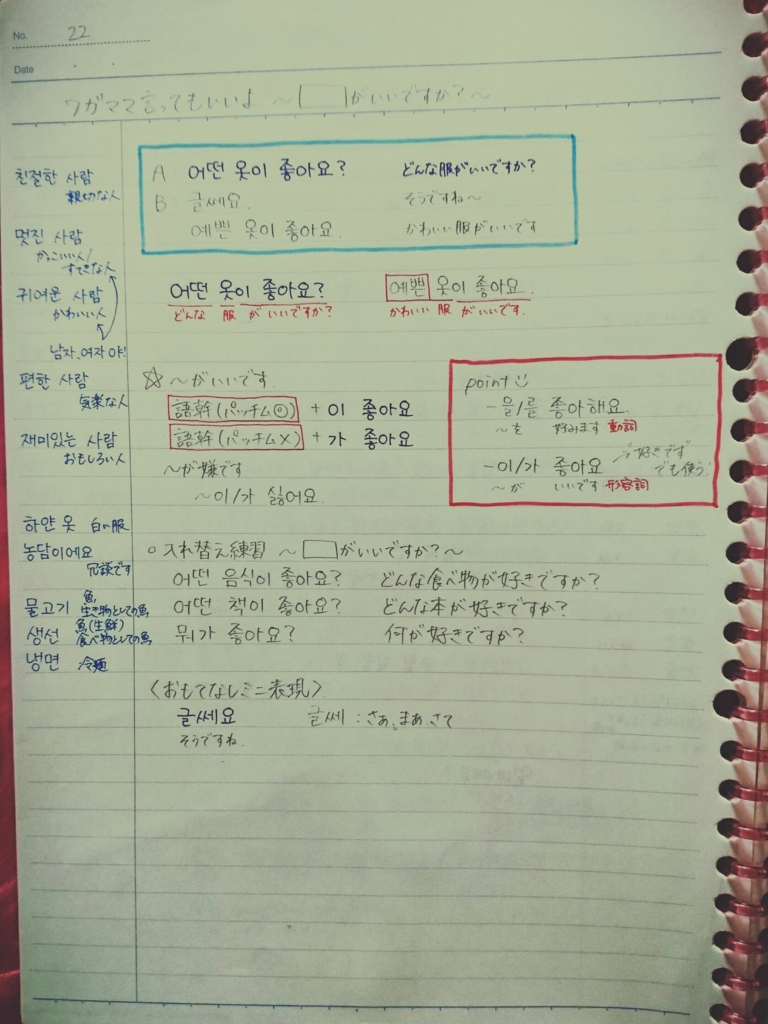 No. 22
Date
ワガママ言ってもいいよ ～ がいいですか？～
親절한 사람
親切な人
멋진 사람
かっこいい人/
すてきな人
귀여운 사람
かわいい人
남자、여자 야!
편한 사람
気楽な人
재미있는 사람
おもしろい人
하얀 옷 白い服
농담이에요
冗談です
물고기 魚,
生き物としての魚
생선 魚(生鮮)
食べ物としての魚
냉면 冷麺
A: 어떤 옷이 좋아요? どんな服がいいですか?
B: 글쎄요. そうですね～
예쁜 옷이 좋아요. かわいい服がいいです
어떤 옷이 좋아요? 예쁜 옷이 좋아요.
どんな 服 がいいですか? かわいい 服 がいいです.
☆ ～がいいです
語幹(パッチム◎) + 이 좋아요
語幹(パッチム×) + 가 좋아요
～が嫌です
～이/가 싫어요.
point
-을/를 좋아해요.
～を 好みます 動詞
-이/가 좋아요 →好きです
でも使う!
～が いいです 形容詞
○入れ替え練習 ～ がいいですか?～
어떤 음식이 좋아요? どんな食べ物が好きですか?
어떤 책이 좋아요? どんな本が好きですか?
뭐가 좋아요? 何が好きですか?
〈おもてなしミニ表現〉
글쎄요 글쎄 : さあ,まあ,さて
そうですね.